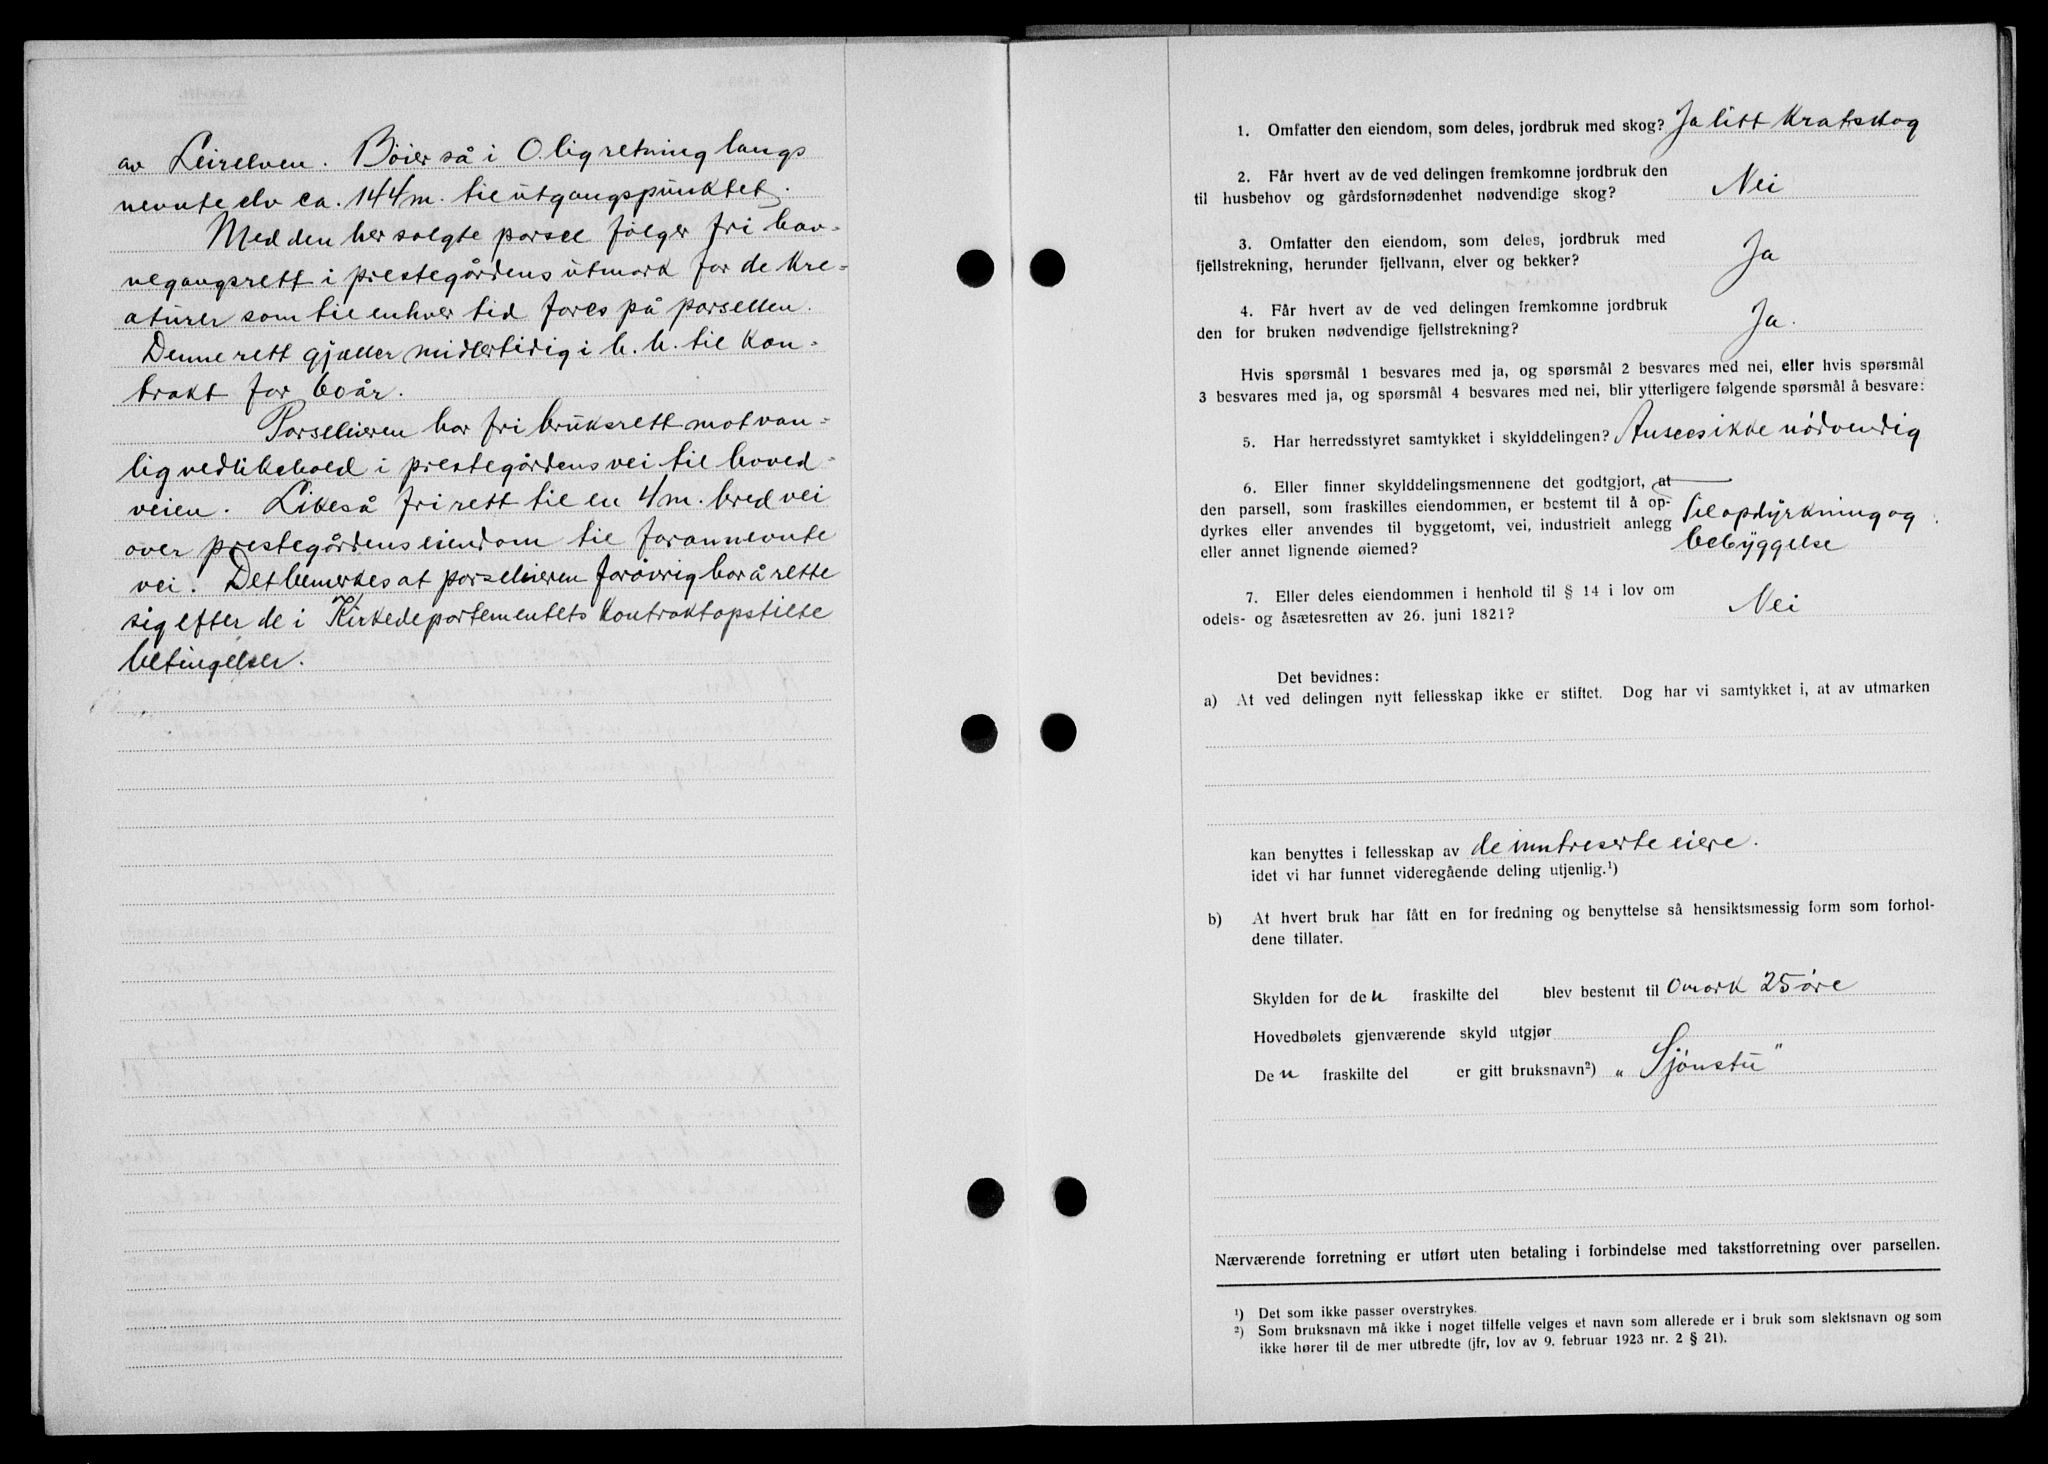 av Leirelven. Böier så i O.lig retning langs
nevnte elv ca. 144 m. til utgangspunktet.
Med den her solgte parsel følger fri hav-
negangsrett i prestegårdens utmark for de kre-
aturer som til enhver tid fores på parsellen.
Denne rett gjæller midlertidig i h. h. til kon-
trakt for 60 år.
Parseleieren har fri bruksrett mot van-
lig vedlikehold i prestegårdens vei til hoved-
veien. Likeså fri rett til en 4 m. bred vei
over prestegårdens eiendom til forannevnte
vei. Det bemerkes at parseleieren forövrig har å rette
sig efter de i Kirkedepartementets kontrakt opstilte
betingelser.
1. Omfatter den eiendom, som deles, jordbruk med skog? Ja litt kratskog
2. Får hvert av de ved delingen fremkomne jordbruk den
til husbehov og gårdsfornødenhet nødvendige skog? Nei
3. Omfatter den eiendom, som deles, jordbruk med
fjellstrekning, herunder fjellvann, elver og bekker? Ja
4. Får hvert av de ved delingen fremkomne jordbruk
den for bruken nødvendige fjellstrekning? Ja.
Hvis spørsmål 1 besvares med ja, og spørsmål 2 besvares med nei, eller hvis spørsmål
3 besvares med ja, og spørsmål 4 besvares med nei, blir ytterligere følgende spørsmål å besvare:
5. Har herredsstyret samtykket i skylddelingen? Ansees ikke nödvendig
6. Eller finner skylddelingsmennene det godtgjort, at
den parsell, som fraskilles eiendommen, er bestemt til å op-
dyrkes eller anvendes til byggetomt, vei, industrielt anlegg
eller annet lignende øiemed? Til opdyrkning og
bebyggelse
7. Eller deles eiendommen i henhold til § 14 i lov om
odels- og åsætesretten av 26. juni 1821? Nei
Det bevidnes:
a) At ved delingen nytt fellesskap ikke er stiftet. Dog har vi samtykket i, at av utmarken
kan benyttes i fellesskap av de inntreserte eiere.
idet vi har funnet videregående deling utjenlig.¹)
b) At hvert bruk har fått en for fredning og benyttelse så hensiktsmessig form som forhol-
dene tillater.
Skylden for den fraskilte del blev bestemt til 0 mark 25 öre
Hovedbølets gjenværende skyld utgjør
Den fraskilte del er gitt bruksnavn²) „Sjönstu"
Nærværende forretning er utført uten betaling i forbindelse med takstforretning over parsellen.
¹) Det som ikke passer overstrykes.
²) Som bruksnavn må ikke i noget tilfelle velges et navn som allerede er i bruk som slektsnavn og som
ikke hører til de mer utbredte (jfr, lov av 9. februar 1923 nr. 2 § 21).